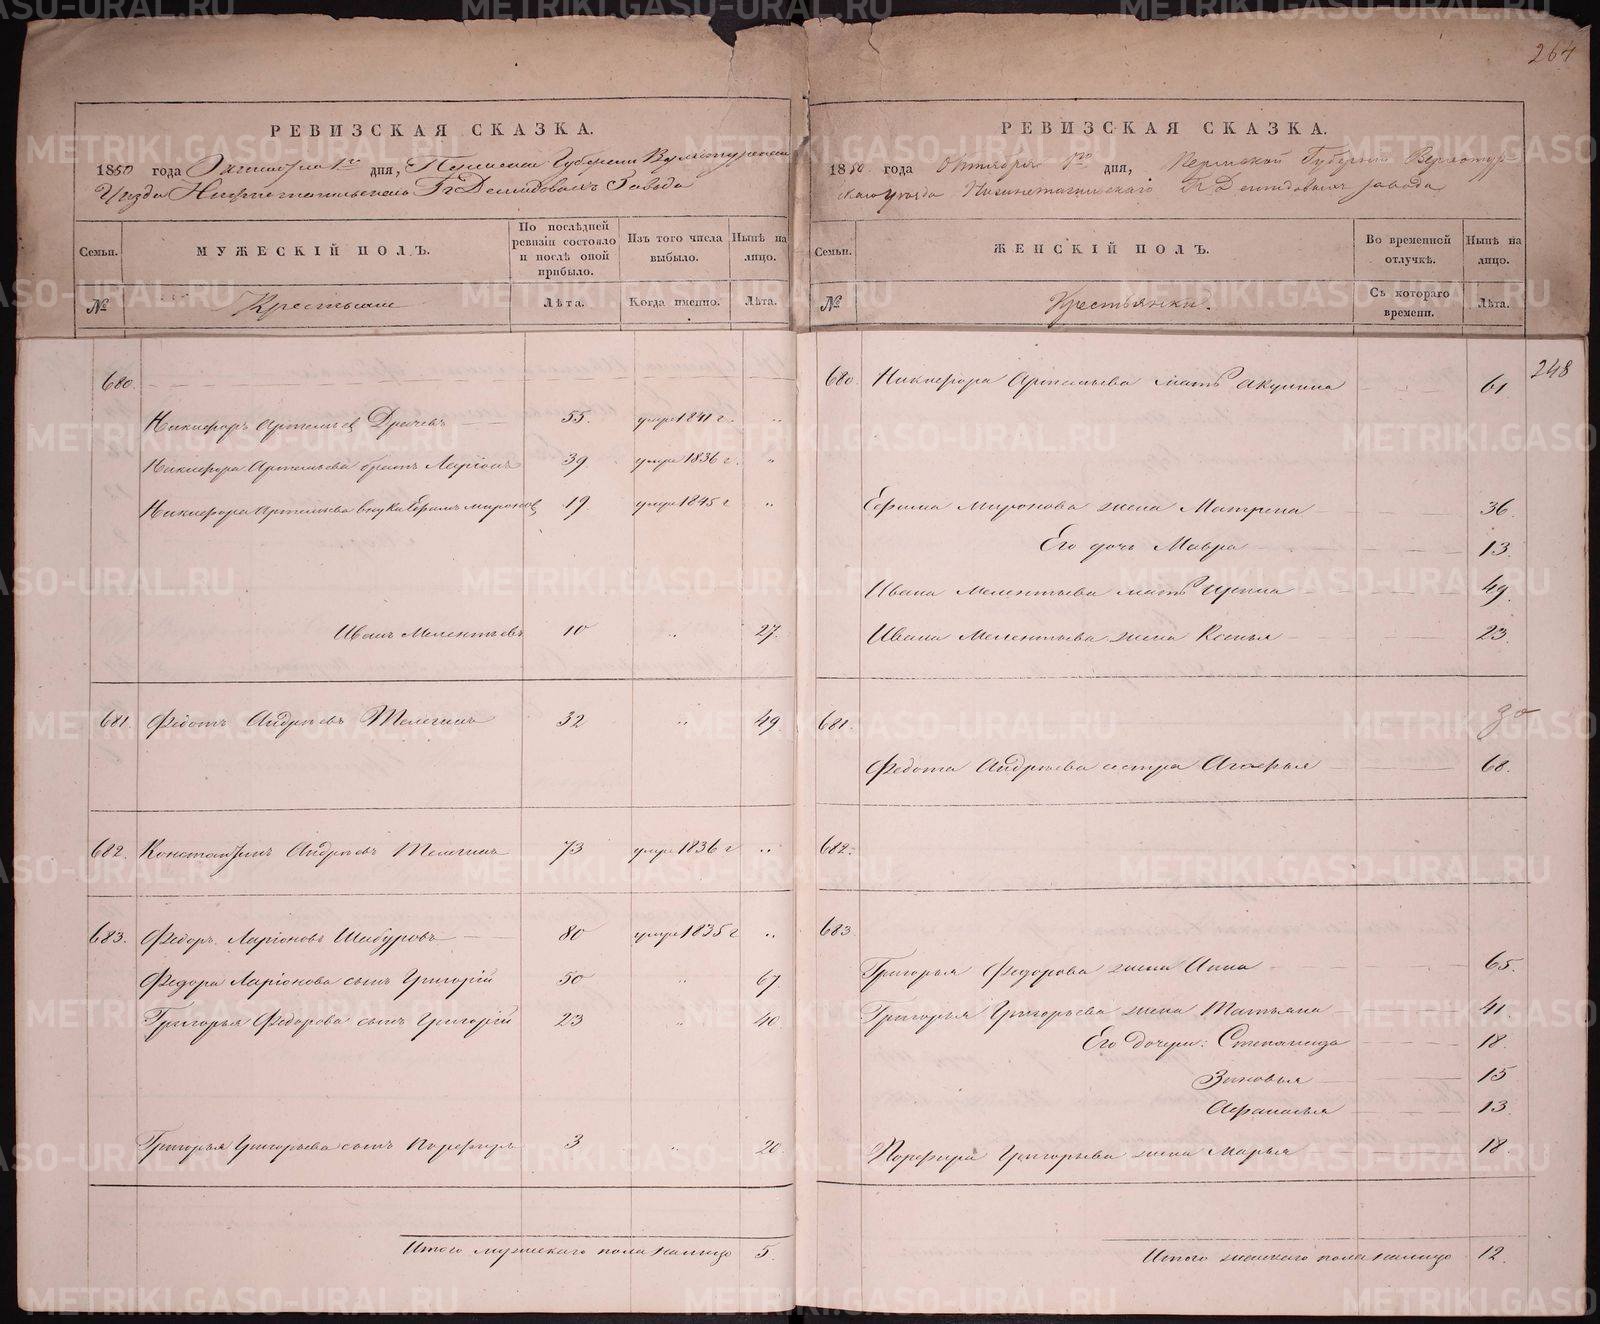 264
РЕВИЗСКАЯ СКАЗКА.
1850 года Октября 1го дня, Пермской Губернии Верхотурскаго
Уезда Нижнетагильскаго Гг Демидовыхъ Завода
Семьи.
МУЖЕСКІЙ ПОЛЪ.
По послѣдней ревизіи состояло и послѣ оной прибыло.
Изъ того числа выбыло.
Нынѣ на лицо.
№
Крестьяне
Лѣта.
Когда именно.
Лѣта.
680.
Никифоръ Артемьевъ 55. умре 1841 г. "
Никифора Артемьева братъ Ларіонъ 39 умре 1836 г. "
Никифора Артемьева внуки Ефимъ Мироновъ 19. умре 1845 г "
Иванъ Мелентьевъ 10 " 27.
681. Федотъ Андрѣевъ Телегинъ 32 " 49.
682. Константинъ Андрѣевъ Телегинъ 73 умре 1836 г "
683. Федоръ Ларіоновъ Шабуровъ 80 умре 1835 г "
Федора Ларіонова сынъ Григорій 50 " 67
Григорья Федорова сынъ Григорій 23 " 40
Григорья Григорьева сынъ Порфиръ 3 " 20.
Итого мужескаго пола налицо 5.
РЕВИЗСКАЯ СКАЗКА.
1850 года Октября 1го дня, Пермской Губерніи Верхотур-
скаго уезда Нижнетагильскаго Гг Демидовыхъ завода
Семьи.
ЖЕНСКІЙ ПОЛЪ.
Во временной отлучкѣ.
Нынѣ на лицо.
№
Крестьянки.
Съ котораго времени.
Лѣта.
248
680. Никифора Артемьева мать Акулина 61
Ефима Миронова жена Матрена 36.
Его дочь Мавра 13.
Ивана Мелентьева мать Ирина 49.
Ивана Мелентьева жена Ксенья 23.
681.
Федота Андрѣева сестра Агафья 68.
682.
683.
Григорья Федорова жена Анна 65.
Григорья Григорьева жена Татьяна 41.
Его дочери: Степанида 18.
Зиновья 15
Афанасья 13.
Порфира Григорьева жена Марья 18.
Итого женскаго пола налицо 12.
METRIKI.GASO-URAL.RU